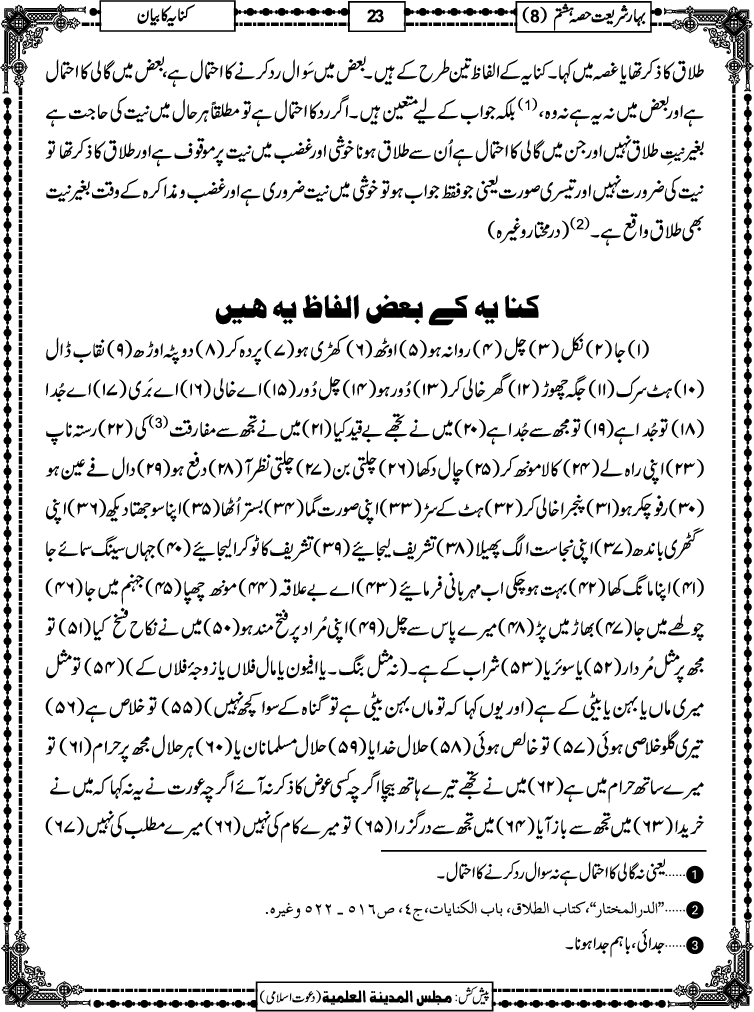 بہارِ شریعت حصہ ہشتم (8)
23
کنایہ کا بیان
طلاق کا ذکر تھا یا غصہ میں کہا۔ کنایہ کے الفاظ تین طرح کے ہیں۔ بعض میں سَوال رد کرنے کا احتمال ہے، بعض میں گالی کا احتمال
ہے اور بعض میں نہ یہ ہے نہ وہ،(1) بلکہ جواب کے لیے متعین ہیں۔ اگر رد کا احتمال ہے تو مطلقاً ہر حال میں نیت کی حاجت ہے
بغیر نیتِ طلاق نہیں اور جن میں گالی کا احتمال ہے اُن سے طلاق ہونا خوشی اور غضب میں نیت پر موقوف ہے اور طلاق کا ذکر تھا تو
نیت کی ضرورت نہیں اور تیسری صورت یعنی جو فقط جواب ہو تو خوشی میں نیت ضروری ہے اور غضب و مذاکرہ کے وقت بغیر نیت
بھی طلاق واقع ہے۔(2) (درمختار وغیرہ)
کنایہ کے بعض الفاظ یہ ھیں
(۱) جا (۲) نکل (۳) چل (۴) روانہ ہو (۵) اوٹھ (۶) کھڑی ہو (۷) پردہ کر (۸) دوپٹہ اوڑھ (۹) نقاب ڈال
(۱۰) ہٹ سرک (۱۱) جگہ چھوڑ (۱۲) گھر خالی کر (۱۳) دُور ہو (۱۴) چل دُور (۱۵) اے خالی (۱۶) اے بَری (۱۷) اے جُدا
(۱۸) تو جُدا ہے (۱۹) تو مجھ سے جُدا ہے (۲۰) میں نے تجھے بے قید کیا (۲۱) میں نے تجھ سے مفارقت(3) کی (۲۲) رستہ ناپ
(۲۳) اپنی راہ لے (۲۴) کالا مونھ کر (۲۵) چال دکھا (۲۶) چلتی بن (۲۷) چلتی نظر آ (۲۸) دفع ہو (۲۹) دال فے عین ہو
(۳۰) رفو چکر ہو (۳۱) پنجرا خالی کر (۳۲) ہٹ کے سڑ (۳۳) اپنی صورت گما (۳۴) بستر اُٹھا (۳۵) اپنا سوجھتا دیکھ (۳۶) اپنی
گٹھری باندھ (۳۷) اپنی نجاست الگ پھیلا (۳۸) تشریف لیجائیے (۳۹) تشریف کا ٹوکرا لیجائیے (۴۰) جہاں سینگ سمائے جا
(۴۱) اپنا مانگ کھا (۴۲) بہت ہو چکی اب مہربانی فرمائیے (۴۳) اے بے علاقہ (۴۴) مونھ چھپا (۴۵) جہنم میں جا (۴۶)
چولھے میں جا (۴۷) بھاڑ میں پڑ (۴۸) میرے پاس سے چل (۴۹) اپنی مُراد پر فتح مند ہو (۵۰) میں نے نکاح فسخ کیا (۵۱) تو
مجھ پر مثل مُردار (۵۲) یا سوئر یا (۵۳) شراب کے ہے۔ (نہ مثل بنگ۔ یا افیون یا مال فلاں یا زوجۂ فلاں کے) (۵۴) تو مثل
میری ماں یا بہن یا بیٹی کے ہے (اور یوں کہا کہ تو ماں بہن بیٹی ہے تو گناہ کے سوا کچھ نہیں) (۵۵) تو خلاص ہے (۵۶)
تیری گلو خلاصی ہوئی (۵۷) تو خالص ہوئی (۵۸) حلال خدا یا (۵۹) حلال مسلمانان یا (۶۰) ہر حلال مجھ پر حرام (۶۱) تو
میرے ساتھ حرام میں ہے (۶۲) میں نے تجھے تیرے ہاتھ بیچا اگرچہ کسی عوض کا ذکر نہ آئے اگرچہ عورت نے یہ نہ کہا کہ میں نے
خریدا (۶۳) میں تجھ سے باز آیا (۶۴) میں تجھ سے درگزرا (۶۵) تو میرے کام کی نہیں (۶۶) میرے مطلب کی نہیں (۶۷)
1 ...... یعنی نہ گالی کا احتمال ہے نہ سوال رد کرنے کا احتمال۔
2 ...... "الدرالمختار"، کتاب الطلاق، باب الکنایات، ج٤، ص٥١٦ ـ ٥٢٢ وغیرہ.
3 ...... جدائی، باہم جدا ہونا۔
پیش کش: مجلس المدینۃ العلمیۃ (دعوتِ اسلامی)